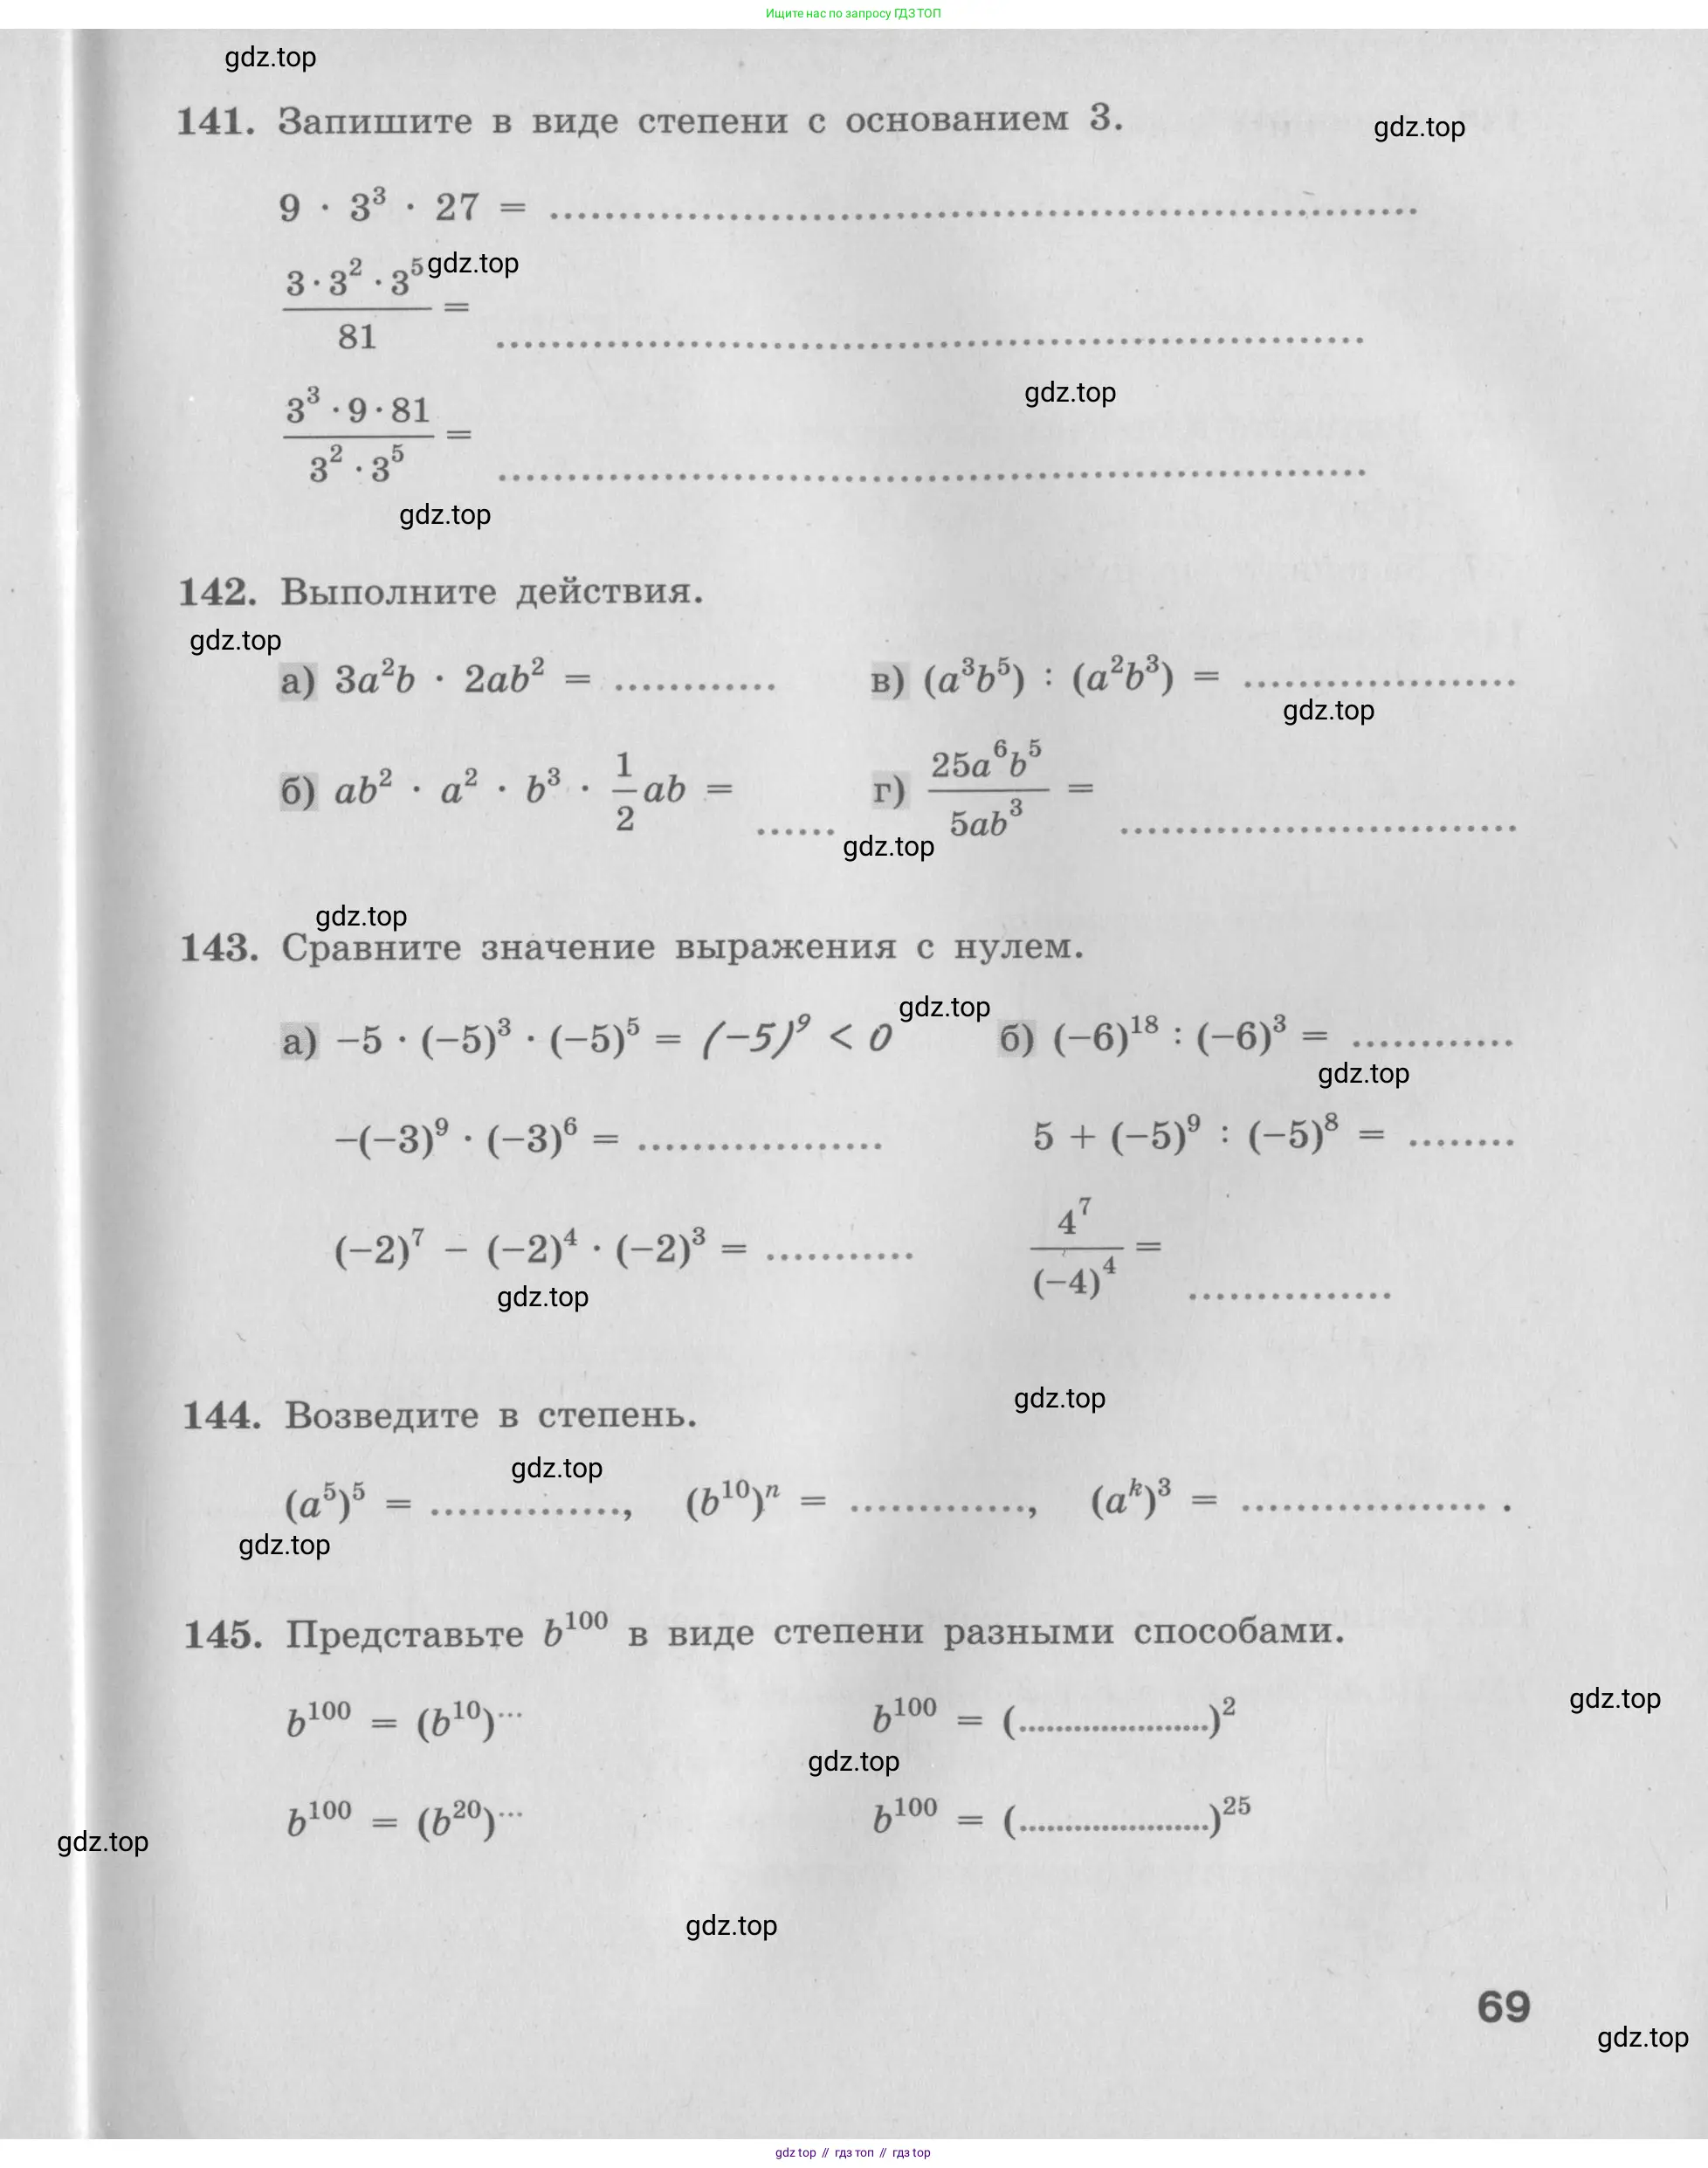 Ищите нас по запросу ГДЗ ТОП
gdz.top
141. Запишите в виде степени с основанием 3.
gdz.top
9 · 3³ · 27 = ...............................................................
3·3² ·3⁵ gdz.top
=
81 ...............................................................
gdz.top
3³ ·9·81
=
3² ·3⁵ ...............................................................
gdz.top
142. Выполните действия.
gdz.top
а) 3a²b · 2ab² = ............ в) (a³b⁵) : (a²b³) = ....................
gdz.top
б) ab² · a² · b³ · 1/2 ab = ...... г) 25a⁶b⁵/5ab³ = .............................
gdz.top
gdz.top
143. Сравните значение выражения с нулем.
gdz.top
а) −5 · (−5)³ · (−5)⁵ = (−5)⁹ < 0 б) (−6)¹⁸ : (−6)³ = ............
gdz.top
−(−3)⁹ · (−3)⁶ = .................. 5 + (−5)⁹ : (−5)⁸ = ........
(−2)⁷ − (−2)⁴ · (−2)³ = ........... 4⁷/(−4)⁴ = ...............
gdz.top
gdz.top
144. Возведите в степень.
gdz.top
(a⁵)⁵ = .............., (b¹⁰)ⁿ = ............., (aᵏ)³ = .................. .
gdz.top
145. Представьте b¹⁰⁰ в виде степени разными способами.
gdz.top
b¹⁰⁰ = (b¹⁰)... b¹⁰⁰ = (.....................)²
gdz.top
b¹⁰⁰ = (b²⁰)... b¹⁰⁰ = (.....................)²⁵
gdz.top
gdz.top
69
gdz.top
gdz top // гдз топ // гдз top